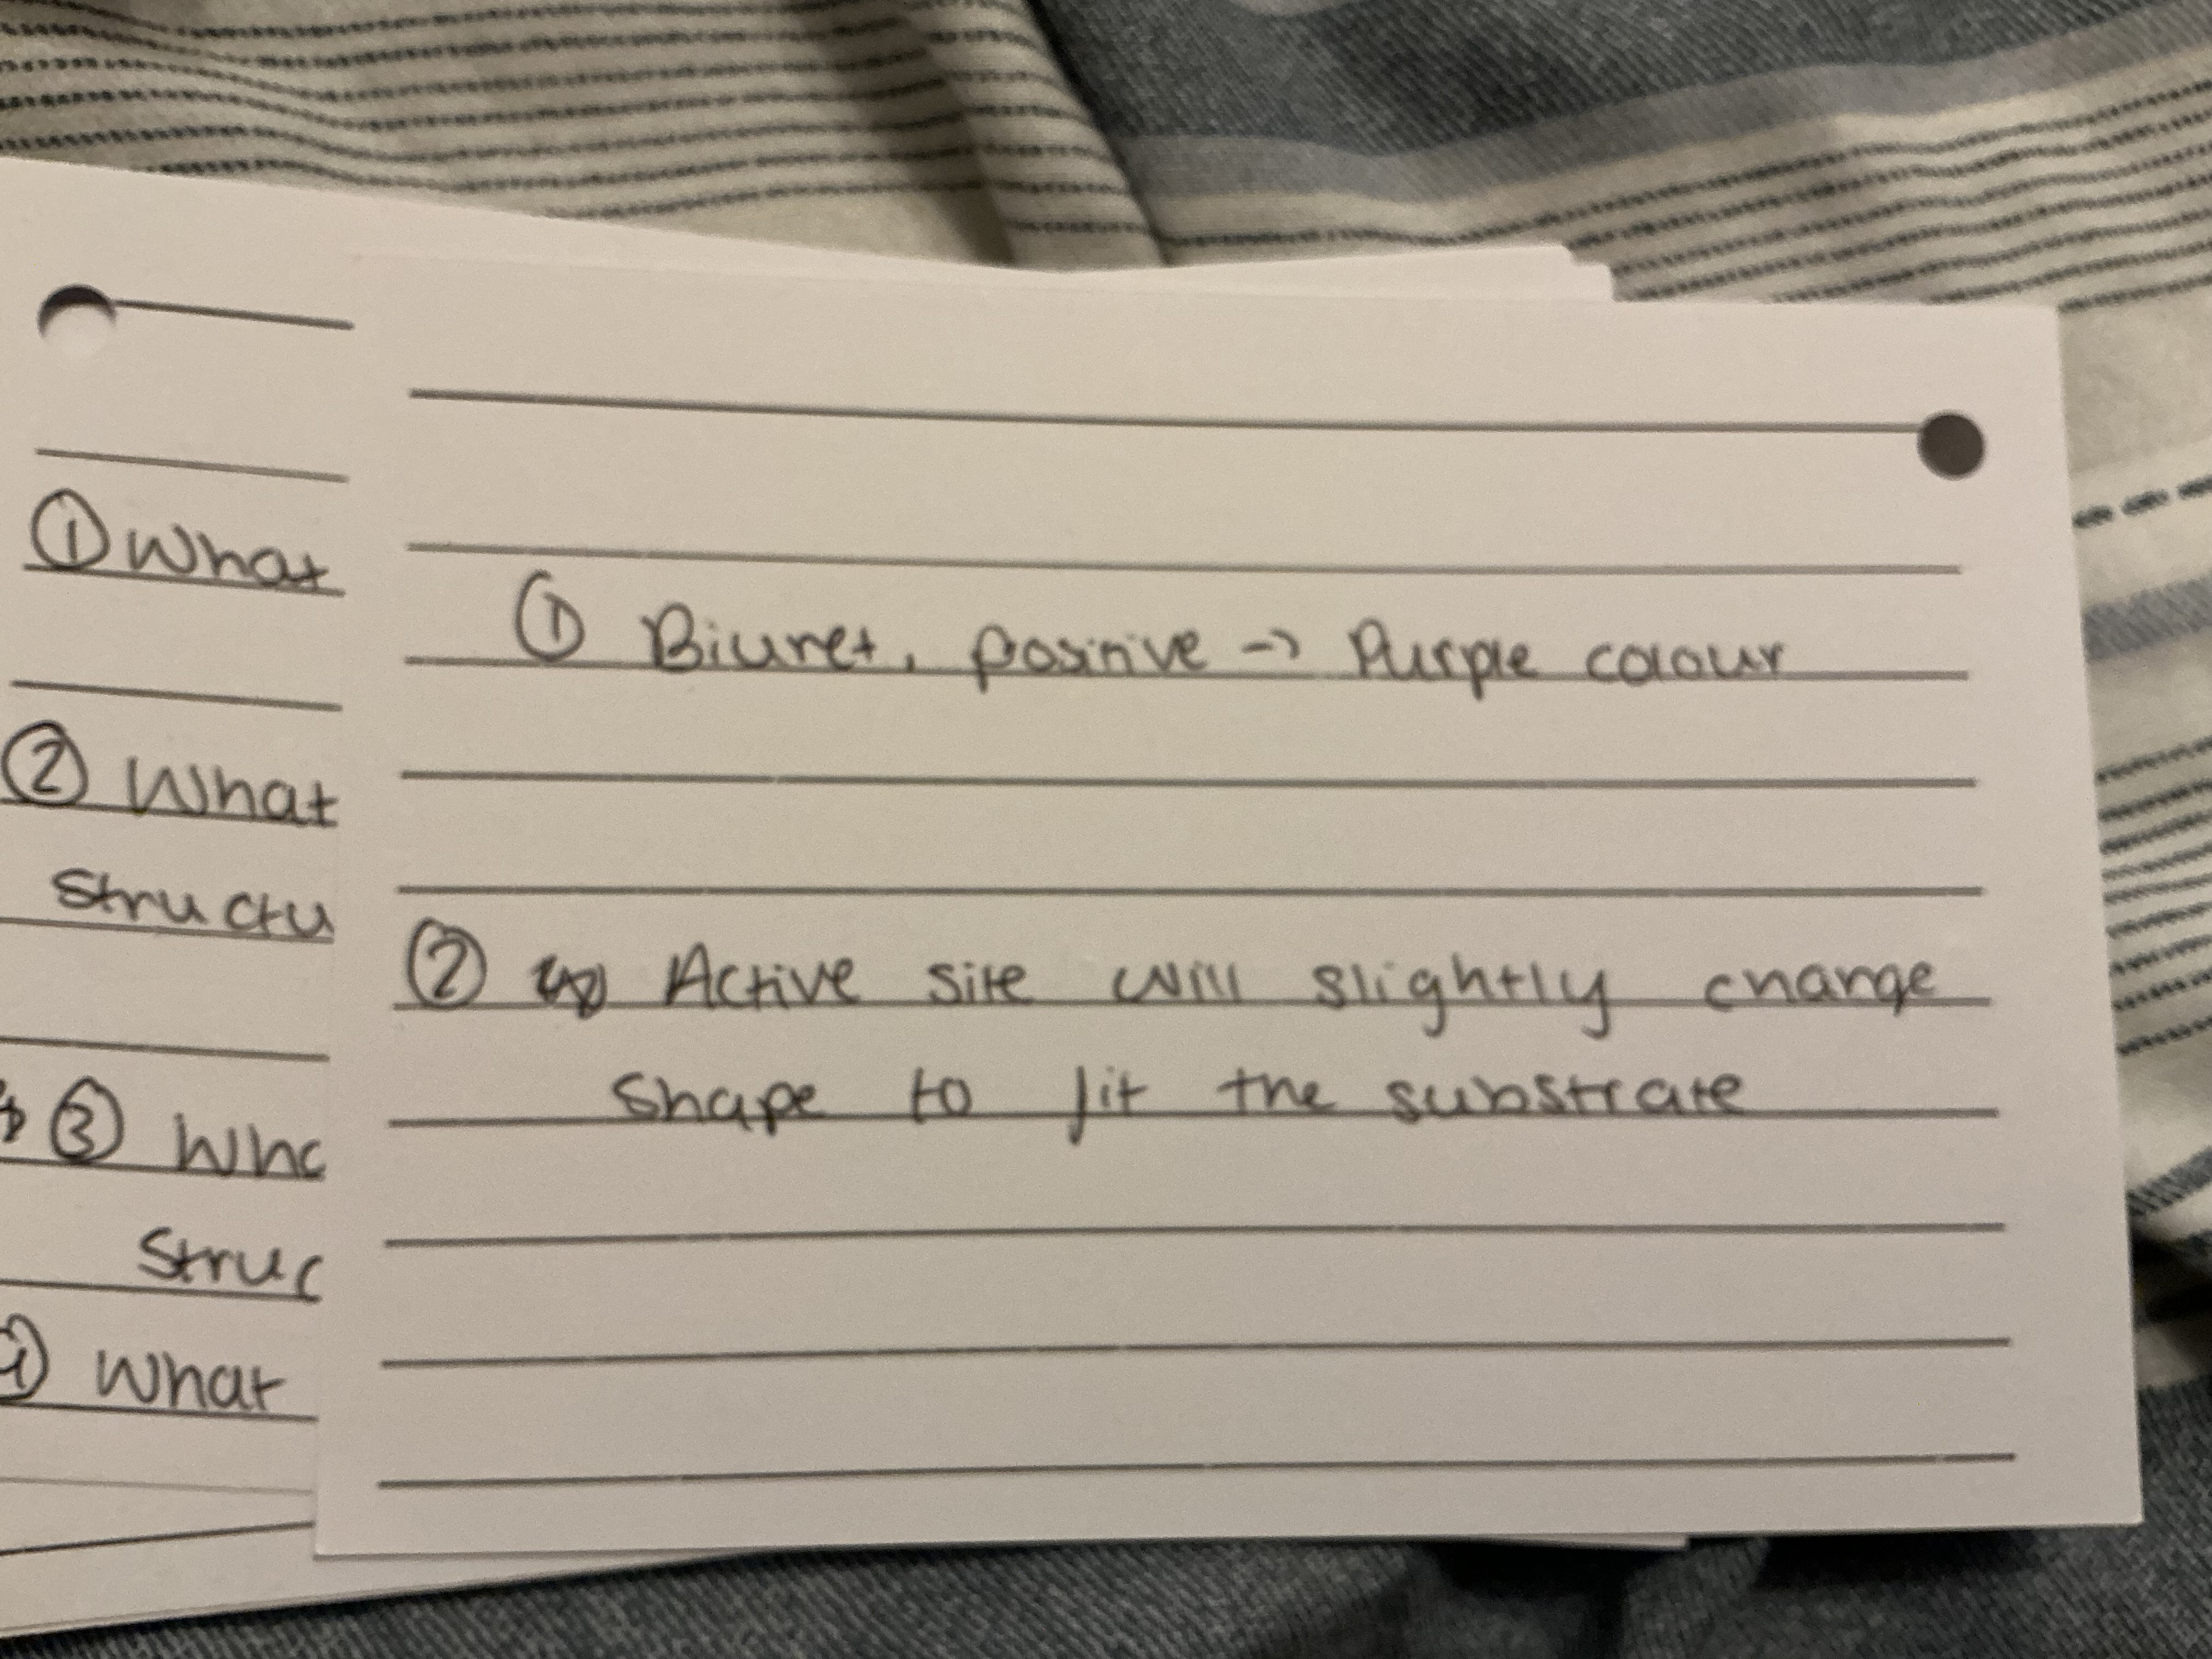 ① What
② What
structu
③ Wha
Struc
④ What
① Biuret, positive -> Purple colour
② Active site will slightly change
shape to fit the substrate